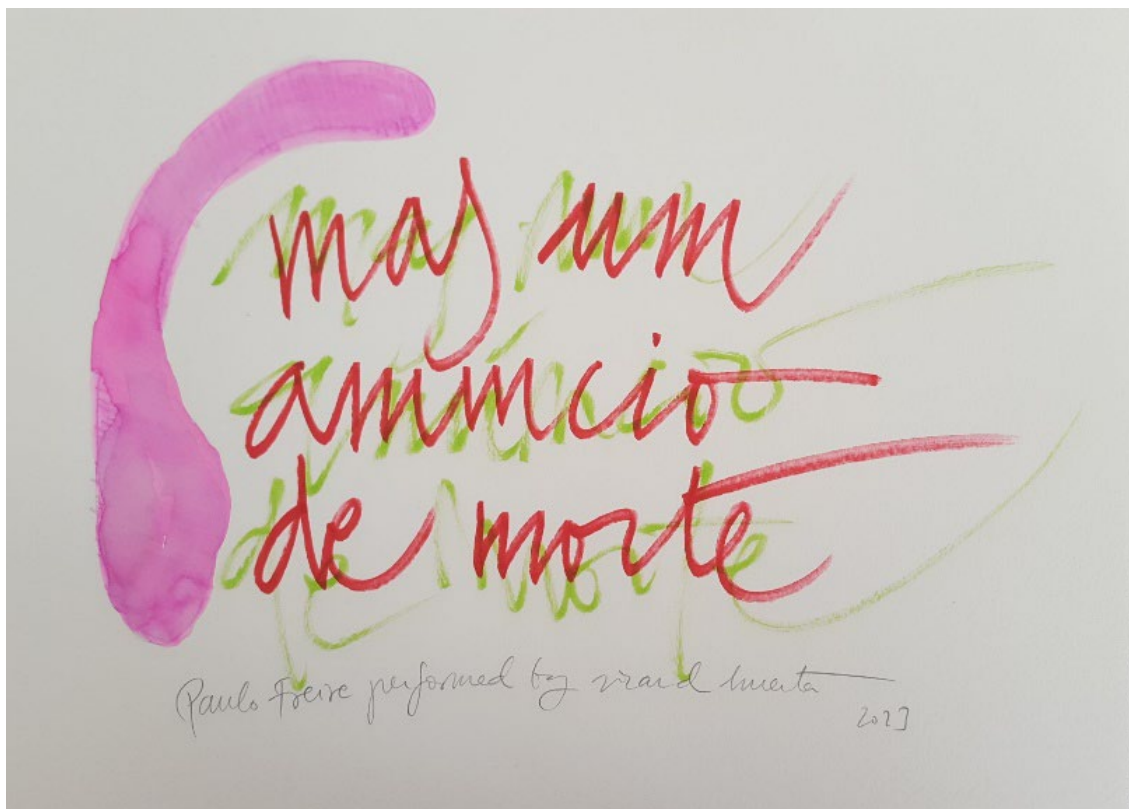 mas um
anúncio
de morte
Paulo Freire performed by huerta
2023